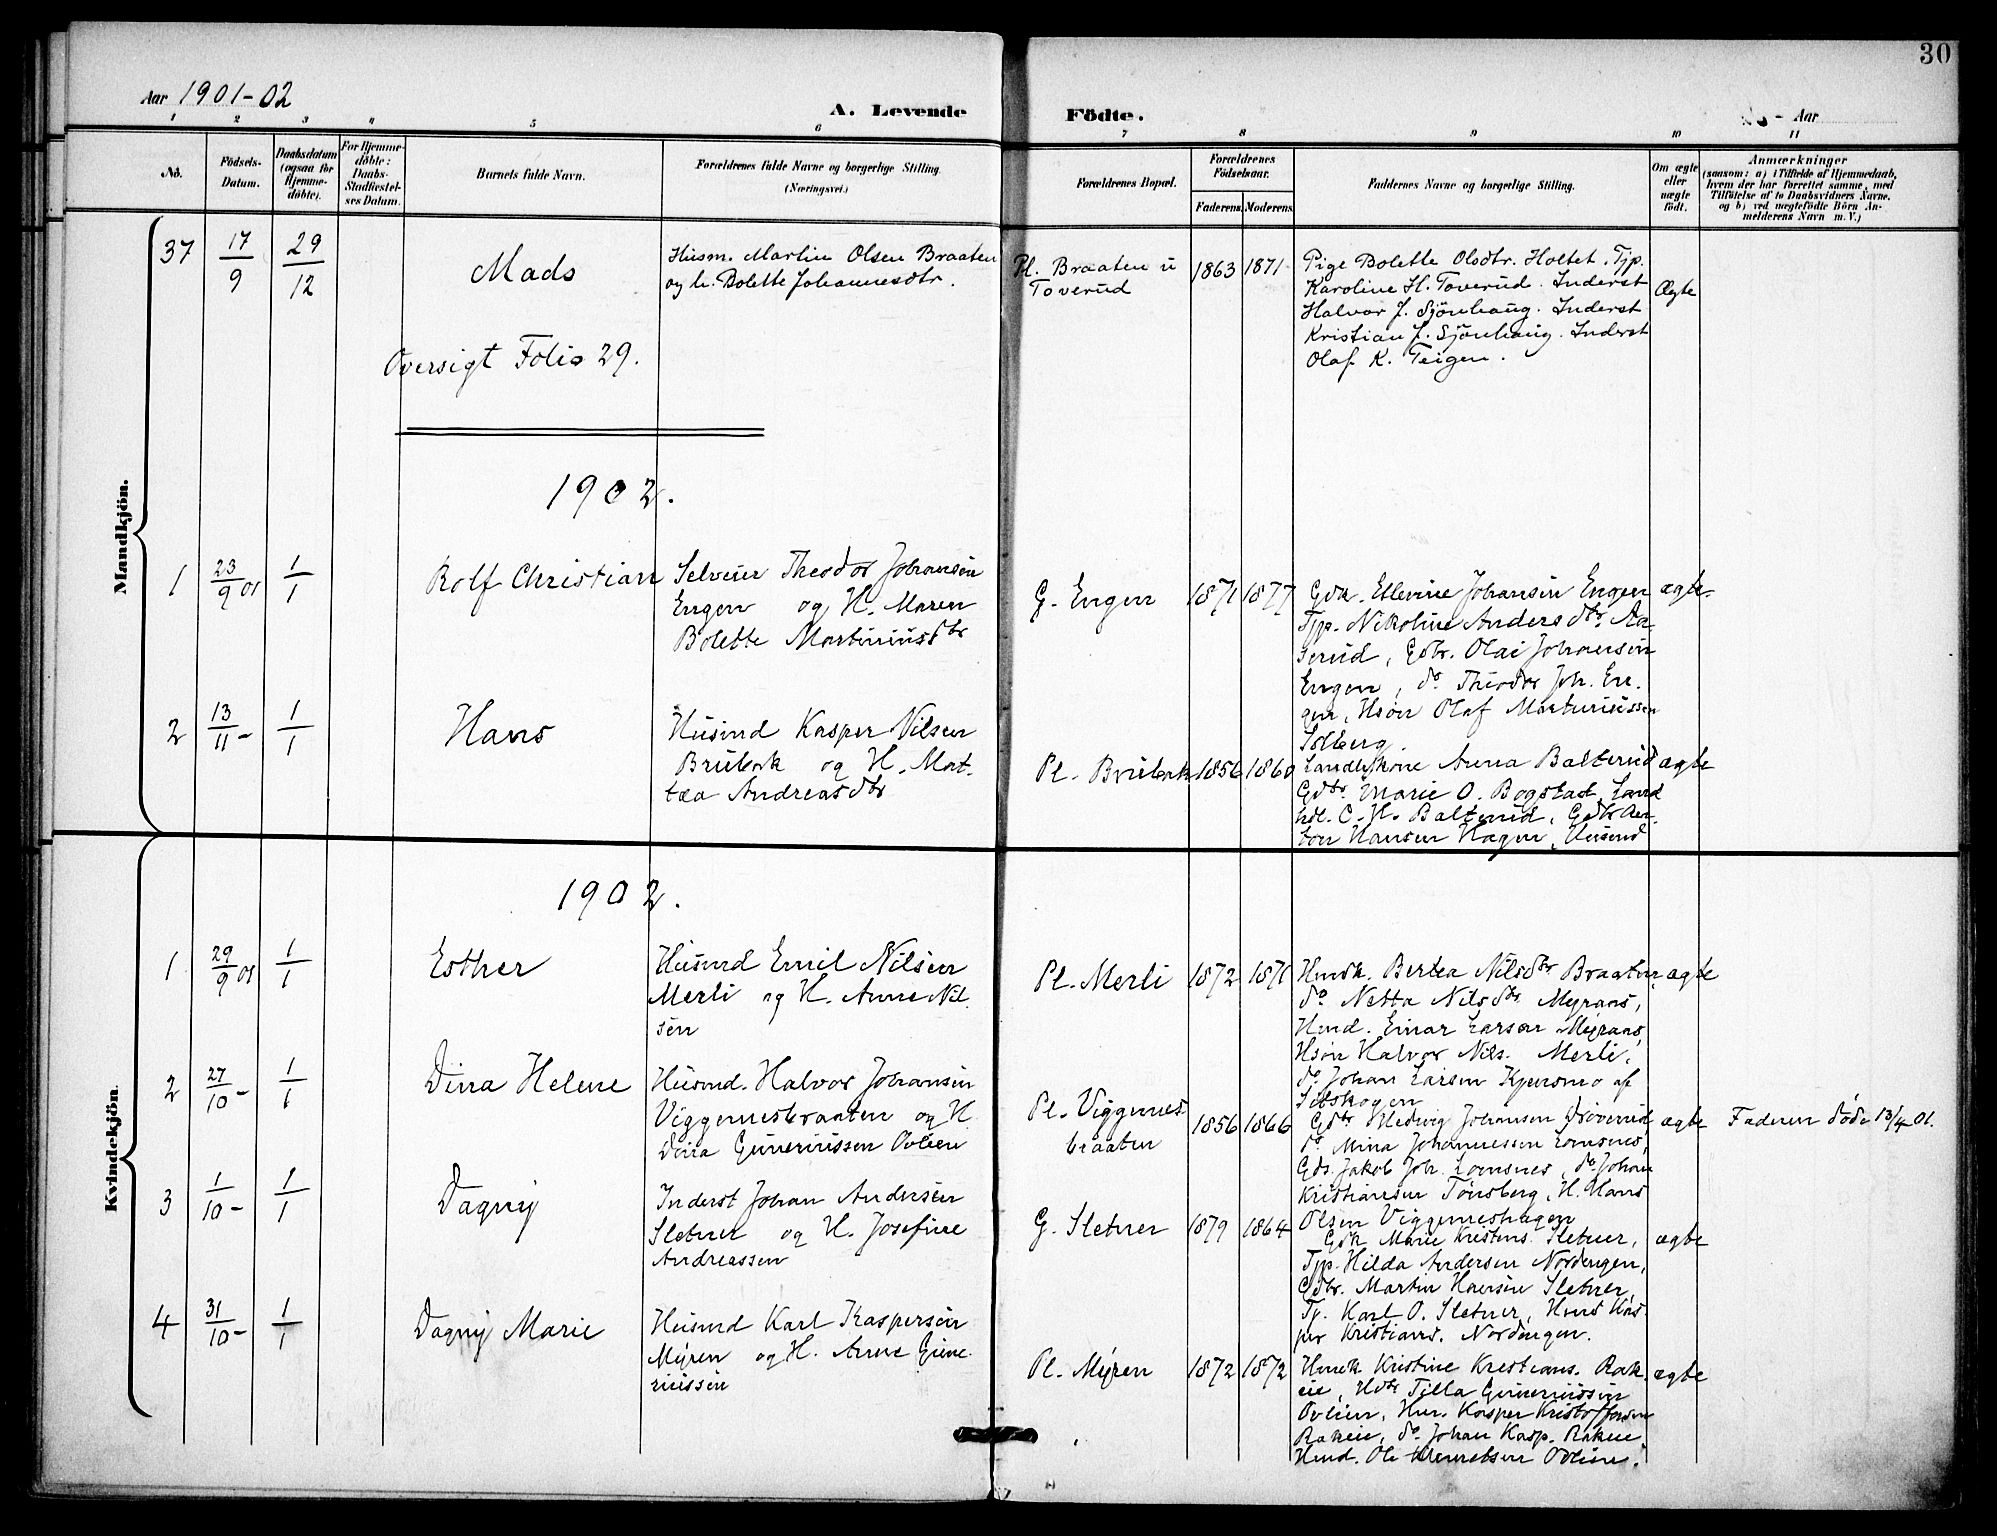 30
Aar 1901-02
A. Levende
Födte.
- Aar
1 2 3 4 5 6 7 8 9 10 11
No.
Födsels-
Datum.
Daabsdatum
(ogsaa for
Hjemme-
döbte).
For Hjemme-
döbte:
Daabs-
Stadfæstel-
ses Datum.
Barnets fulde Navn.
Forældrenes fulde Navne og borgerlige Stilling.
(Næringsvei.)
Forældrenes Bopæl.
Forældrenes
Födselsaar.
Faderens. Moderens.
Faddernes Navne og borgerlige Stilling.
Om ægte
eller
uægte
födt.
Anmærkninger
(saasom: a) i Tilfælde af Hjemmedaab,
hvem der har forrettet samme, med
Tilföielse af to Daabsvidners Navne.
og b) ved uægtefödte Börn An-
melderens Navn m. V.)
Mandkjön.
37
17/9
29/12
Mads
Husm. Martin Olsen Braaten
og h. Bolette Johannesdtr.
Pl. Braaten u
Toverud
1863 1871
Pige Bolette Olsdtr. Holtet. Tjp.
Karoline H. Toverud. Inderst
Halvor J. Sjönhaug. Inderst
Kristian J. Sjönhaug. Inderst
Olaf K. Teigen.
Ægte
Oversigt Folio 29.
1902.
1
23/9 01
1/1
Rolf Christian
Selveier Theodor Johansen
Engen og H. Maren
Bolette Martiniusdtr
G. Engen
1871 1877
Gdk. Ellevine Johansen Engen
Tjp. Nikoline Andersdtr. Aa-
serud, Gdbr. Olai Johansen
Engen, do. Theodor Joh. En-
gen, Hsøn Olaf Martiniussen
Solberg.
ægte
2
13/11 -
1/1
Hans
Husmd Kasper Nilsen
Brubæk og H. Mat-
tea Andreasdtr
Pl. Brubæk
1856 1860
Landhskone Anna Balterud
Gdtr. Marie O. Bogstad, Land
hdl. C. H. Balterud, Gdbr An-
ton Hansen Hagen, Husmd
ægte
Kvindekjön
1902.
1
29/9 01
1/1
Esther
Husmd Emil Nilsen
Merli og H. Anne Nil-
sen
Pl. Merli
1872 1871
Hmsk. Bertea Nilsdtr Braaten,
do Netta Nilsdtr. Myrans,
Hmd. Einar Larsen Myrans,
Hsøn Halvor Nils. Merli,
do. Johan Larsen Kjensmo af
ægte
2
27/10 -
1/1
Dina Helene
Husmd. Halvor Johansen
Viggenesbraaten og H.
Dina Guneriussen Ovlien
Pl. Viggenes
braaten
1856 1866
Gdtr Hedvig Johansen Prøverud
do. Mina Johannessen Lomsnes,
Gds. Jakob Joh. Lomsnes, do. Johan
Kristiansen Tønsberg, H. Hans
Olsen Viggeneshagen
ægte
Faderen døde 13/4 01.
3
1/10 -
1/1
Dagny
Inderst Johan Andersen
Sletner og H. Josefine
Andreassen
G. Sletner
1879 1864
Gdk Marie Kristens. Sletner,
Tjp. Hilda Andersen Nordengen,
Gdbr. Martin Hansen Sletner,
Tj. Karl O. Sletner, Hmd Kas-
per Kristians. Nordengen.
ægte
4
31/10 -
1/1
Dagny Marie
Husmd Karl Kaspersen
Myren og H. Anne Gune-
riussen
Pl. Myren
1872 1872
Hmsk Kristine Kristians. Rak-
eie, Hdtr Tilla Gunerussen
Ovlien, Hm. Kasper Kristoffersen
Rakeie, do. Johan Kasp. Rakeie
Hmd. Ole Klemetsen Ovlien.
ægte